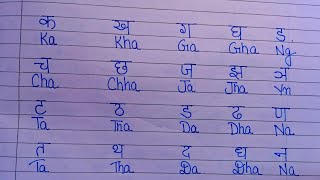 क ख ग घ ङ
Ka Kha Ga Gha Ng
च छ ज झ ञ
Cha Chha Ja Jha Yn
ट ठ ड ढ ण
Ta Tha Da Dha Na
त थ द ध न
Ta Tha Da Dha Na